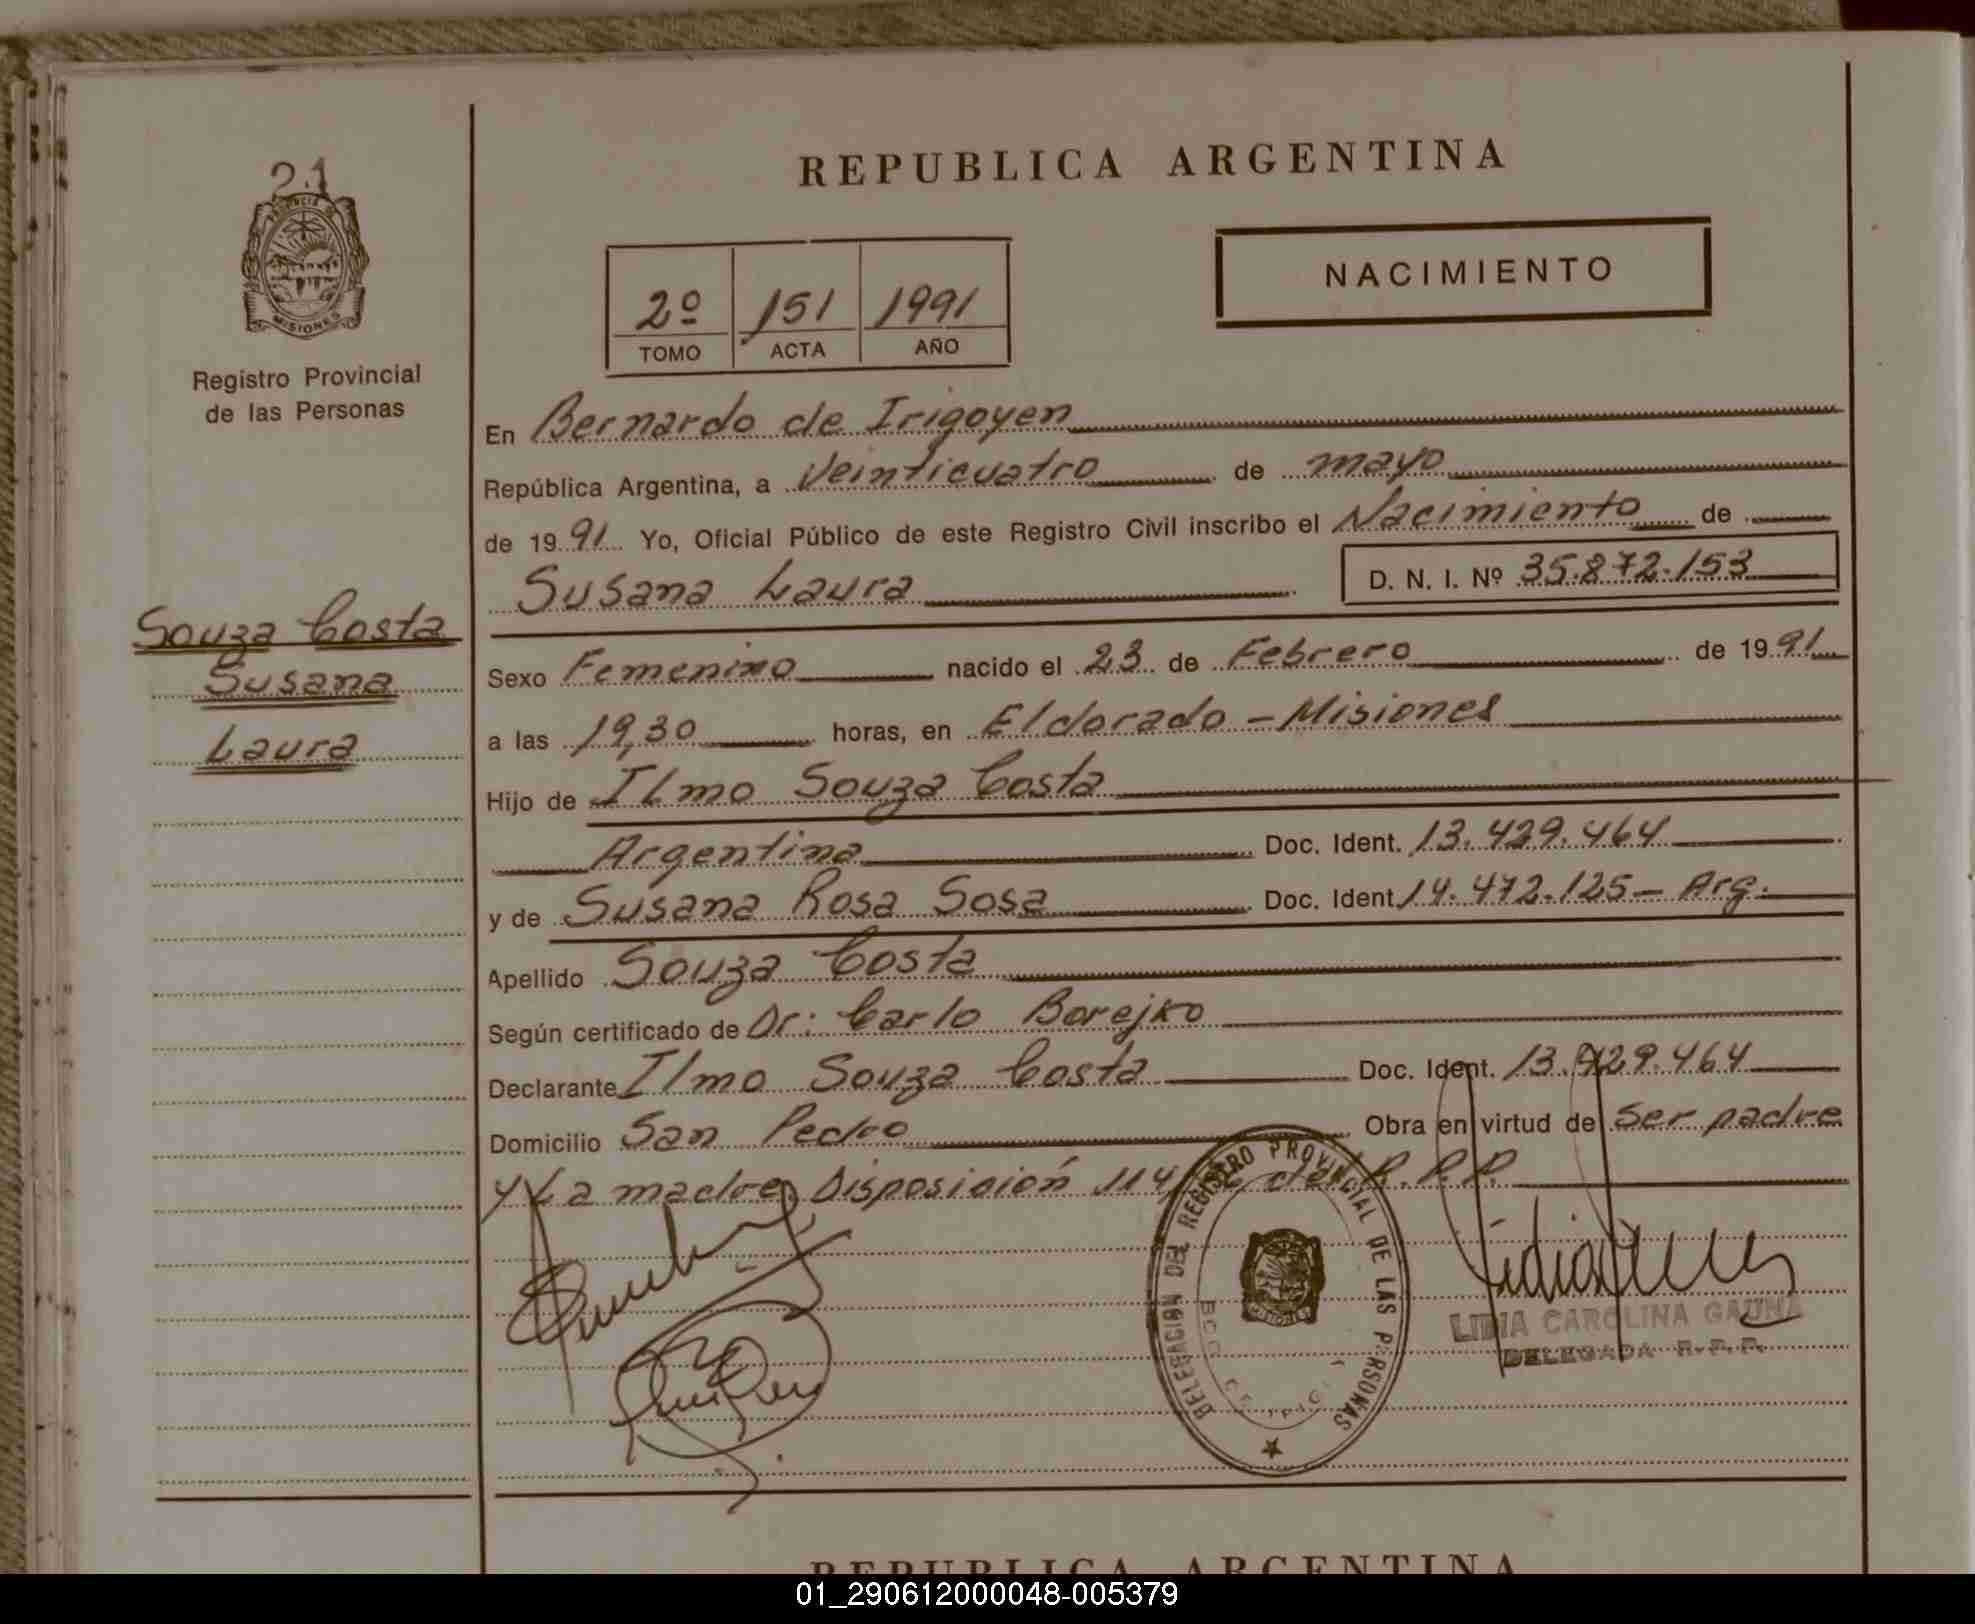 21
PROVINCIA DE
MISIONES
Registro Provincial
de las Personas
Souza Costa
Susana
Laura
REPUBLICA ARGENTINA
NACIMIENTO
2º 151 1991
TOMO ACTA AÑO
En Bernardo de Irigoyen
República Argentina, a Veinticuatro de mayo
de 1991 Yo, Oficial Público de este Registro Civil inscribo el Nacimiento de
Susana Laura D. N. I. Nº 35.872.153
Sexo Femenino nacido el 23 de Febrero de 1991
a las 19,30 horas, en Eldorado - Misiones
Hijo de Ilmo Souza Costa
Argentina Doc. Ident. 13.429.464
y de Susana Rosa Sosa Doc. Ident. 14.472.125 - Arg.
Apellido Souza Costa
Según certificado de Dr: Carlo Borejko
Declarante Ilmo Souza Costa Doc. Ident. 13.429.464
Domicilio San Pedro Obra en virtud de Ser padre
y La madre. Disposición 114 del R.P.P.
DELEGACION DEL REGISTRO PROVINCIAL DE LAS PERSONAS
MISIONES
LIDIA CAROLINA GAUNA
DELEGADA R.P.P.
REPUBLICA ARGENTINA
01_290612000048-005379